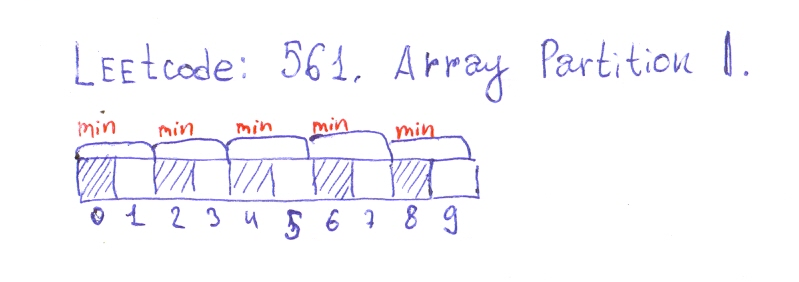 LEEtcode: 561. Array Partition I.
min min min min min
0 1 2 3 4 5 6 7 8 9